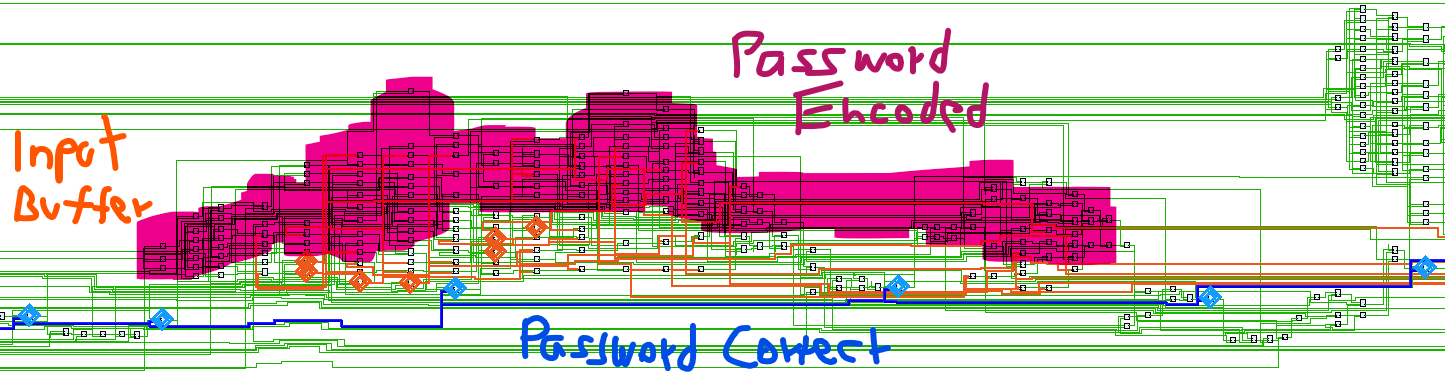 Password
Encoded
Input
Buffer
Password Correct